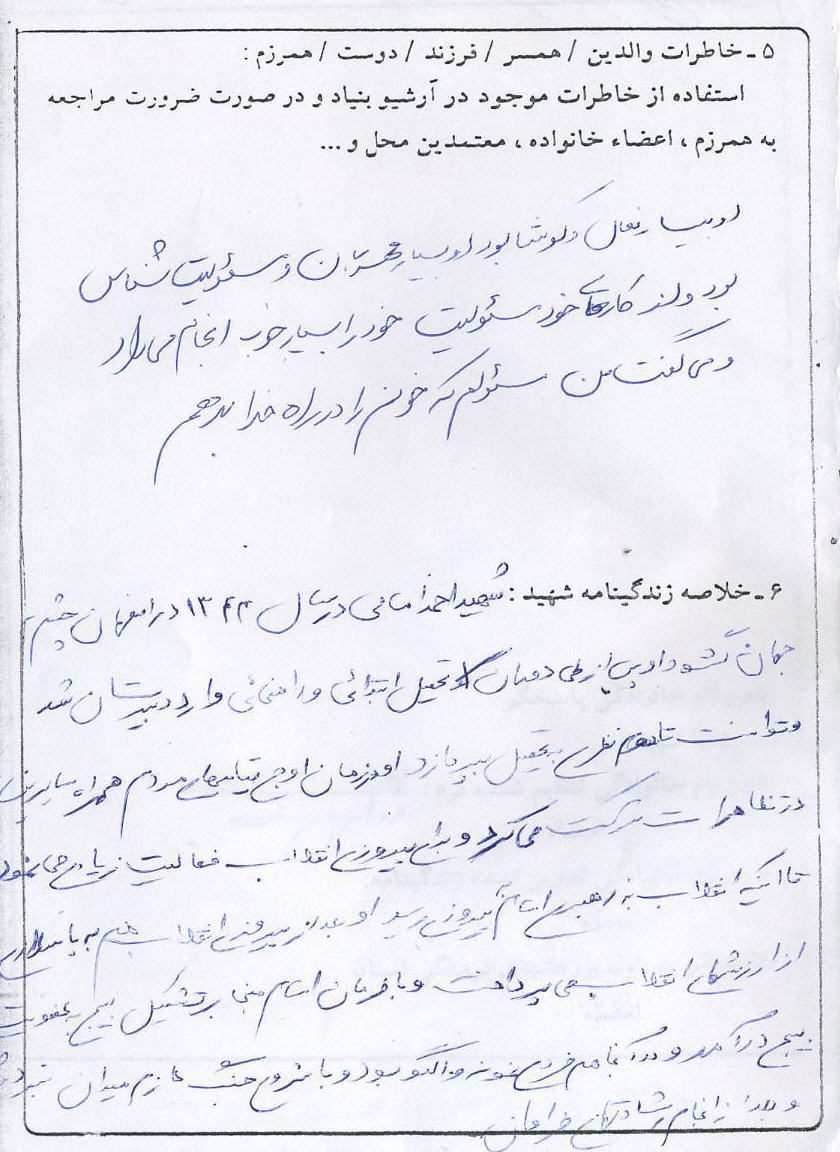 ۵ ـ خاطرات والدین / همسر / فرزند / دوست / همرزم :
استفاده از خاطرات موجود در آرشیو بنیاد و در صورت ضرورت مراجعه
به همرزم ، اعضاء خانواده ، معتمدین محل و ...
او بسیار فعال و کوشا بود او بسیار مهربان و مسئولیت شناس
بود و کارهای خود مسئولیت خود را بسیار خوب انجام می داد
و می گفت من مسئولم که خونم را در راه خدا بدهم
۶ ـ خلاصه زندگینامه شهید : شهید احمد امامی در سال ۱۳۴۴ در اصفهان چشم
جهان گشود و پس از طی دوران تحصیل ابتدائی و راهنمائی وارد دبیرستان شد
و توانست تا نظری به تحصیل بپردازد او در زمان اوج قیامهای مردم همراه سایرین
در تظاهرات شرکت می کرد و برای پیروزی انقلاب فعالیت زیادی می نمود
تا اینکه انقلاب به رهبری امام به پیروزی رسید او بعد از پیروزی انقلاب هم به پاسداری
از ارزشهای انقلاب می پرداخت و با فرمان امام مبنی بر تشکیل بسیج به عضویت
بسیج در آمد و در آنجا هم فردی نمونه و الگو بود و با شروع جنگ عازم میدان نبرد
و بعد از انجام